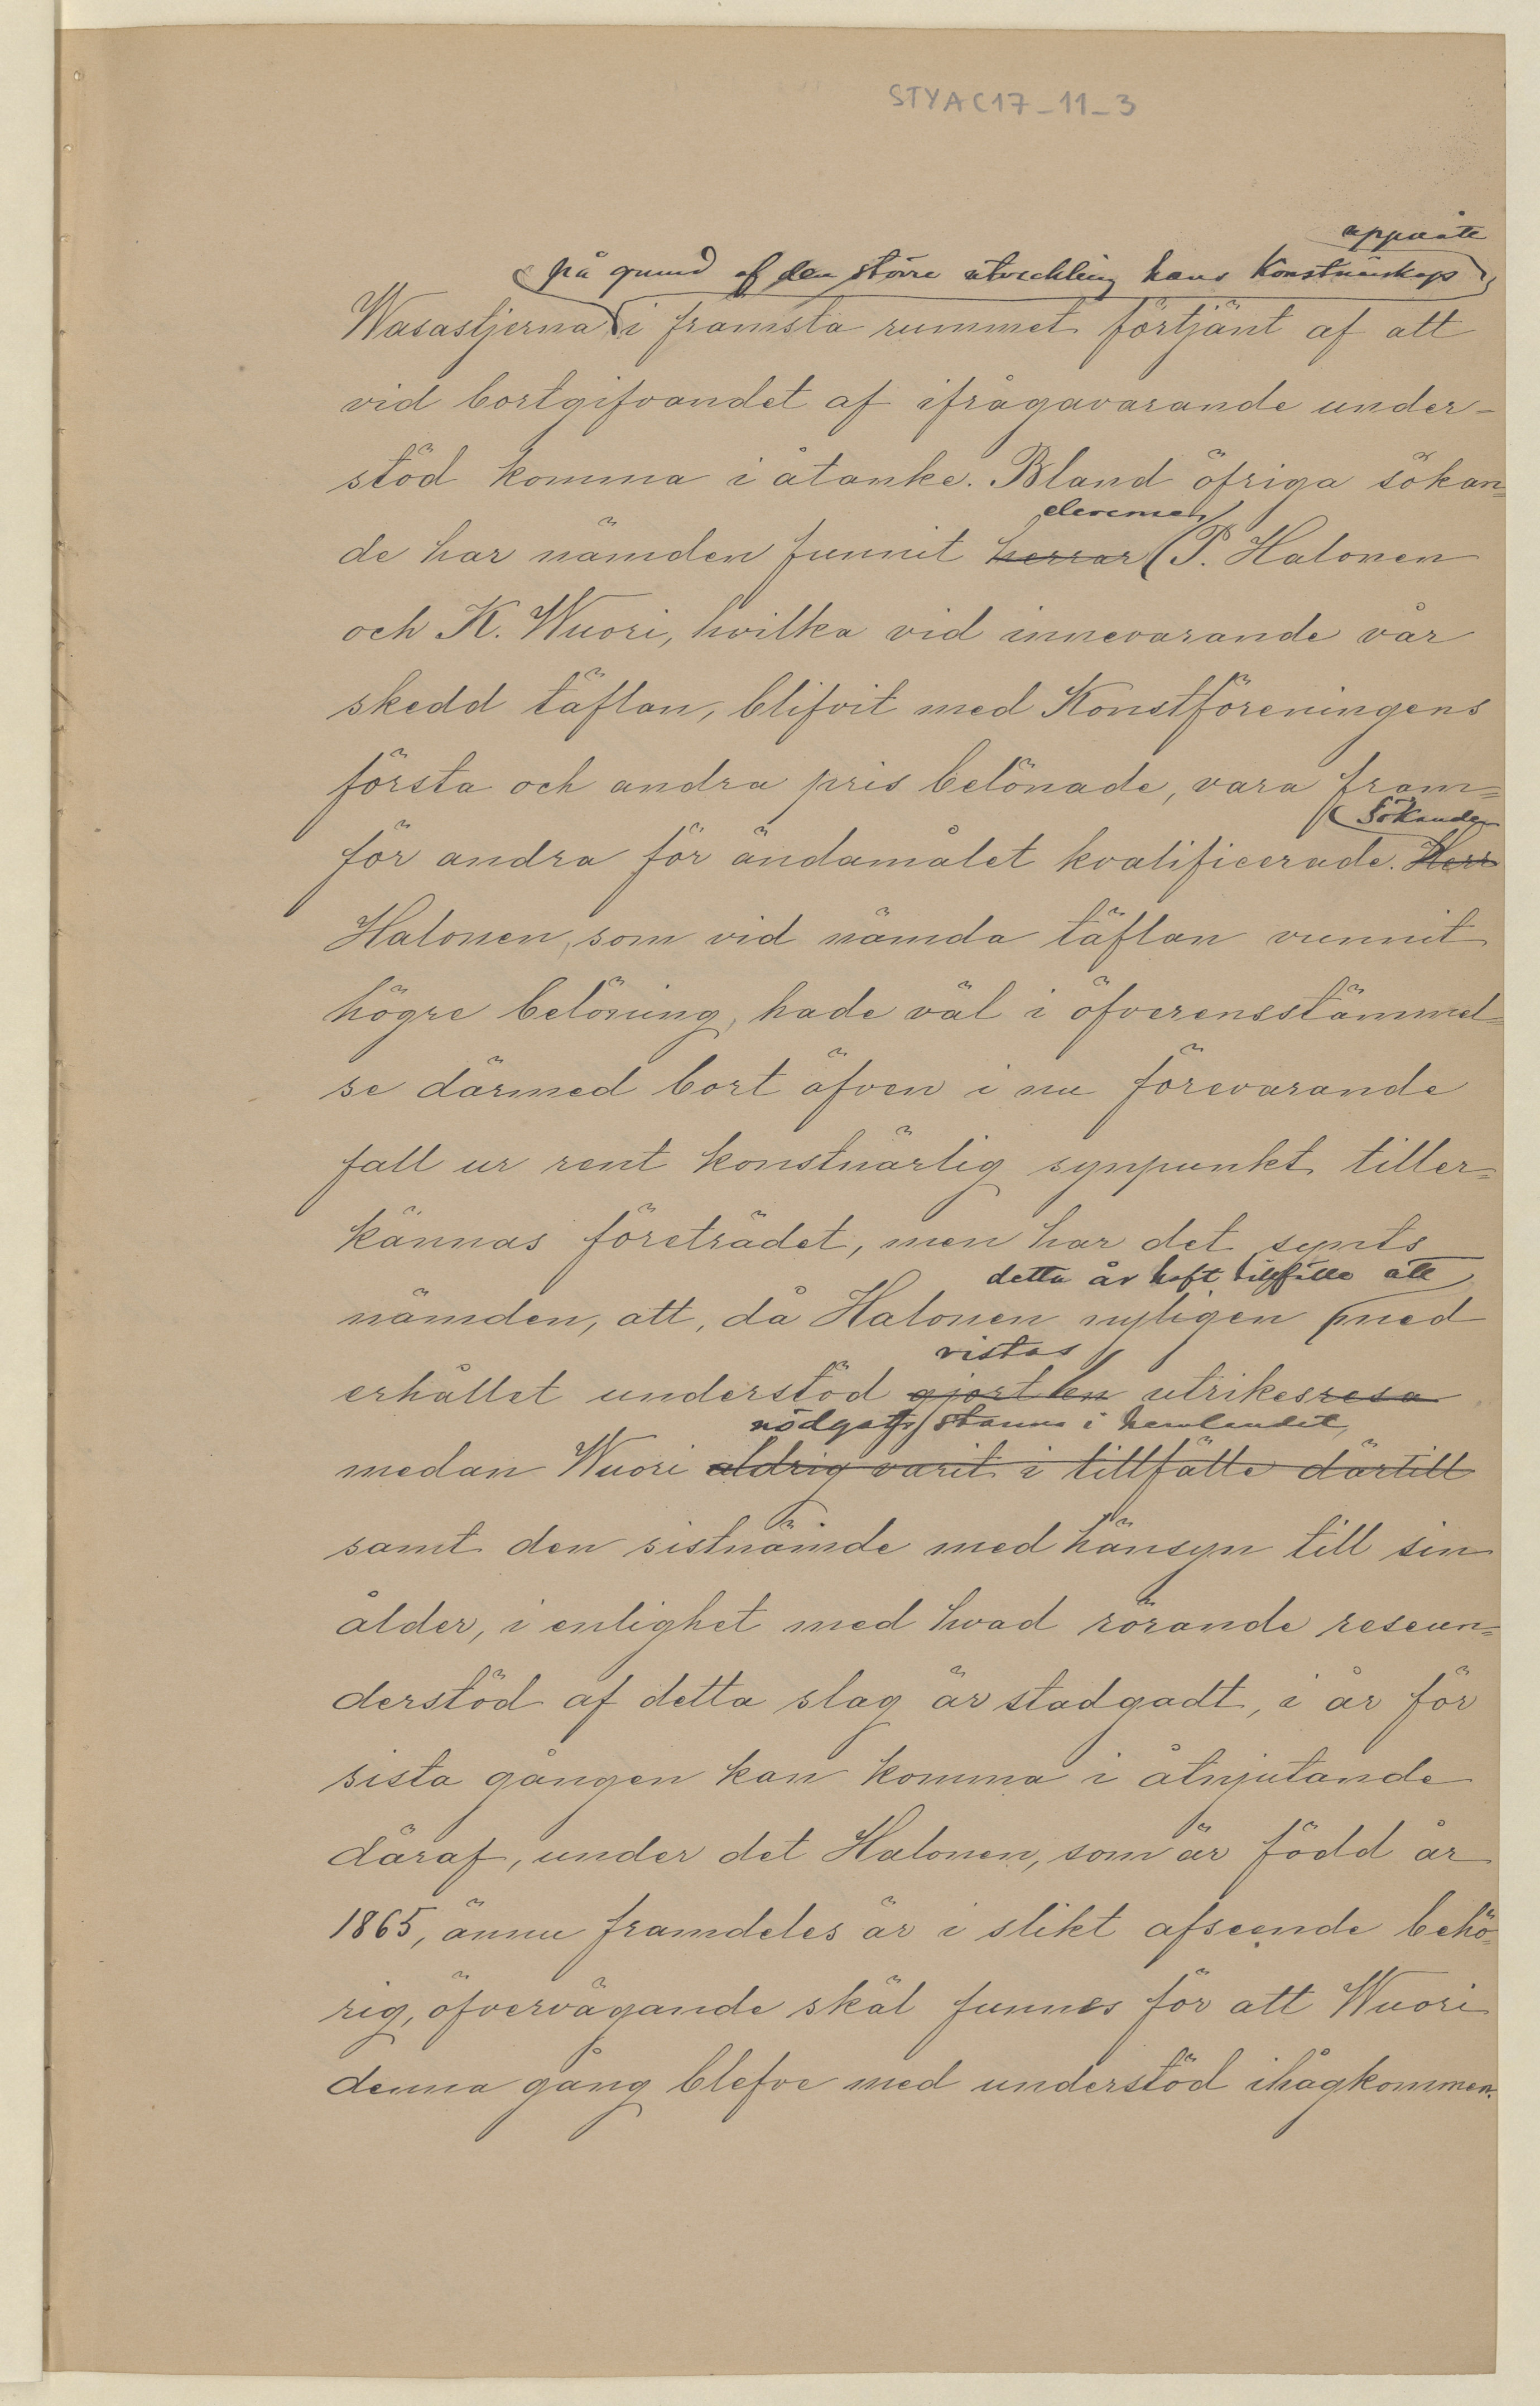 STYAC17_11_3
uppnått
på grund af den större utveckling hans konstnärskap
Wasastjerna i främsta rummet förtjänt af att
vid bortgifvandet af ifrågavarande under-
stöd komma i åtanke. Bland öfriga sökan=
eleverne
de har nämden funnit herrar P. Halonen
och K. Wuori, hvilka vid innevarande vår
skedd täflan, blifvit med Konstföreningens
första och andra pris belönade, vara fram=
Sökanden
för andra för ändamålet kvalificerade. Herr
Halonen, som vid nämda täflan vunnit
högre belöning, hade väl i öfverensstämmel=
se därmed bort äfven i nu förevarande
fall ur rent konstnärlig synpunkt tiller=
kännas företrädet, men har det synts
detta år haft tillfälle att
nämden, att, då Halonen nyligen med
vistas
erhållet understöd gjort en utrikesresa
nödgats stanna i hemlandet,
medan Wuori aldrig varit i tillfälle därtill
samt den sistnämde med hänsyn till sin
ålder, i enlighet med hvad rörande reseun=
derstöd af detta slag är stadgadt, i år för
sista gången kan komma i åtnjutande
däraf, under det Halonen, som är född år
1865, ännu framdeles är i slikt afseende behö-
rig, öfvervägande skäl funnes för att Wuori
denna gång blefve med understöd ihågkommen.